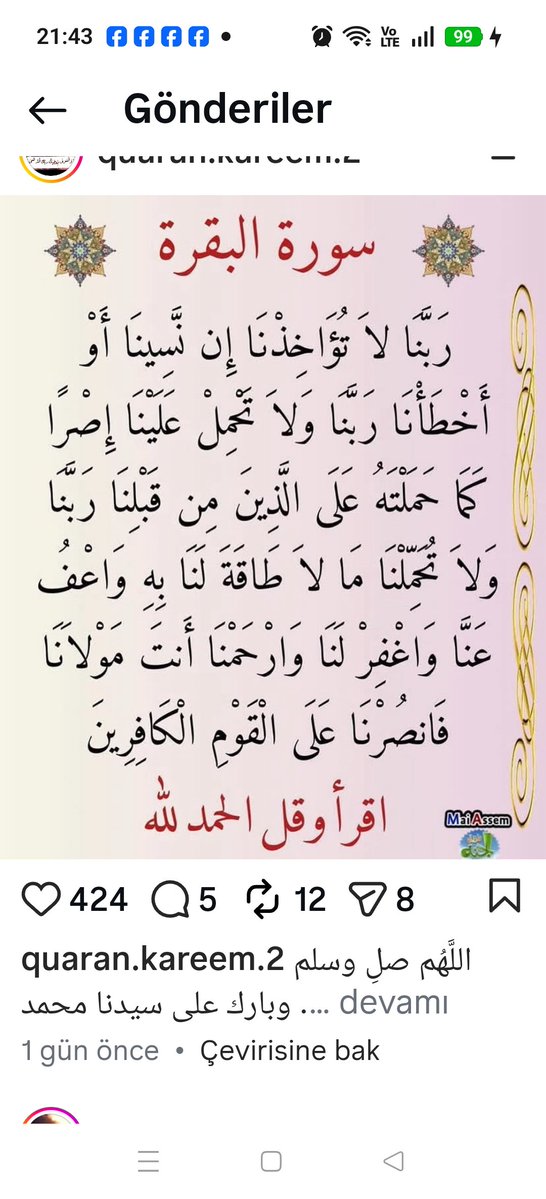 21:43
Vo LTE
99
Gönderiler
quaran.kareem.2
سورة البقرة
رَبَّنَا لاَ تُؤَاخِذْنَا إِن نَّسِينَا أَوْ
أَخْطَأْنَا رَبَّنَا وَلاَ تَحْمِلْ عَلَيْنَا إِصْرًا
كَمَا حَمَلْتَهُ عَلَى الَّذِينَ مِن قَبْلِنَا رَبَّنَا
وَلاَ تُحَمِّلْنَا مَا لاَ طَاقَةَ لَنَا بِهِ وَاعْفُ
عَنَّا وَاغْفِرْ لَنَا وَارْحَمْنَا أَنتَ مَوْلاَنَا
فَانصُرْنَا عَلَى الْقَوْمِ الْكَافِرِينَ
اقرأ وقل الحمد لله
MaiAssem
424 5 12 8
quaran.kareem.2 اللَّهُم صلِ وسلم
وبارك على سيدنا محمد .... devamı
1 gün önce • Çevirisine bak